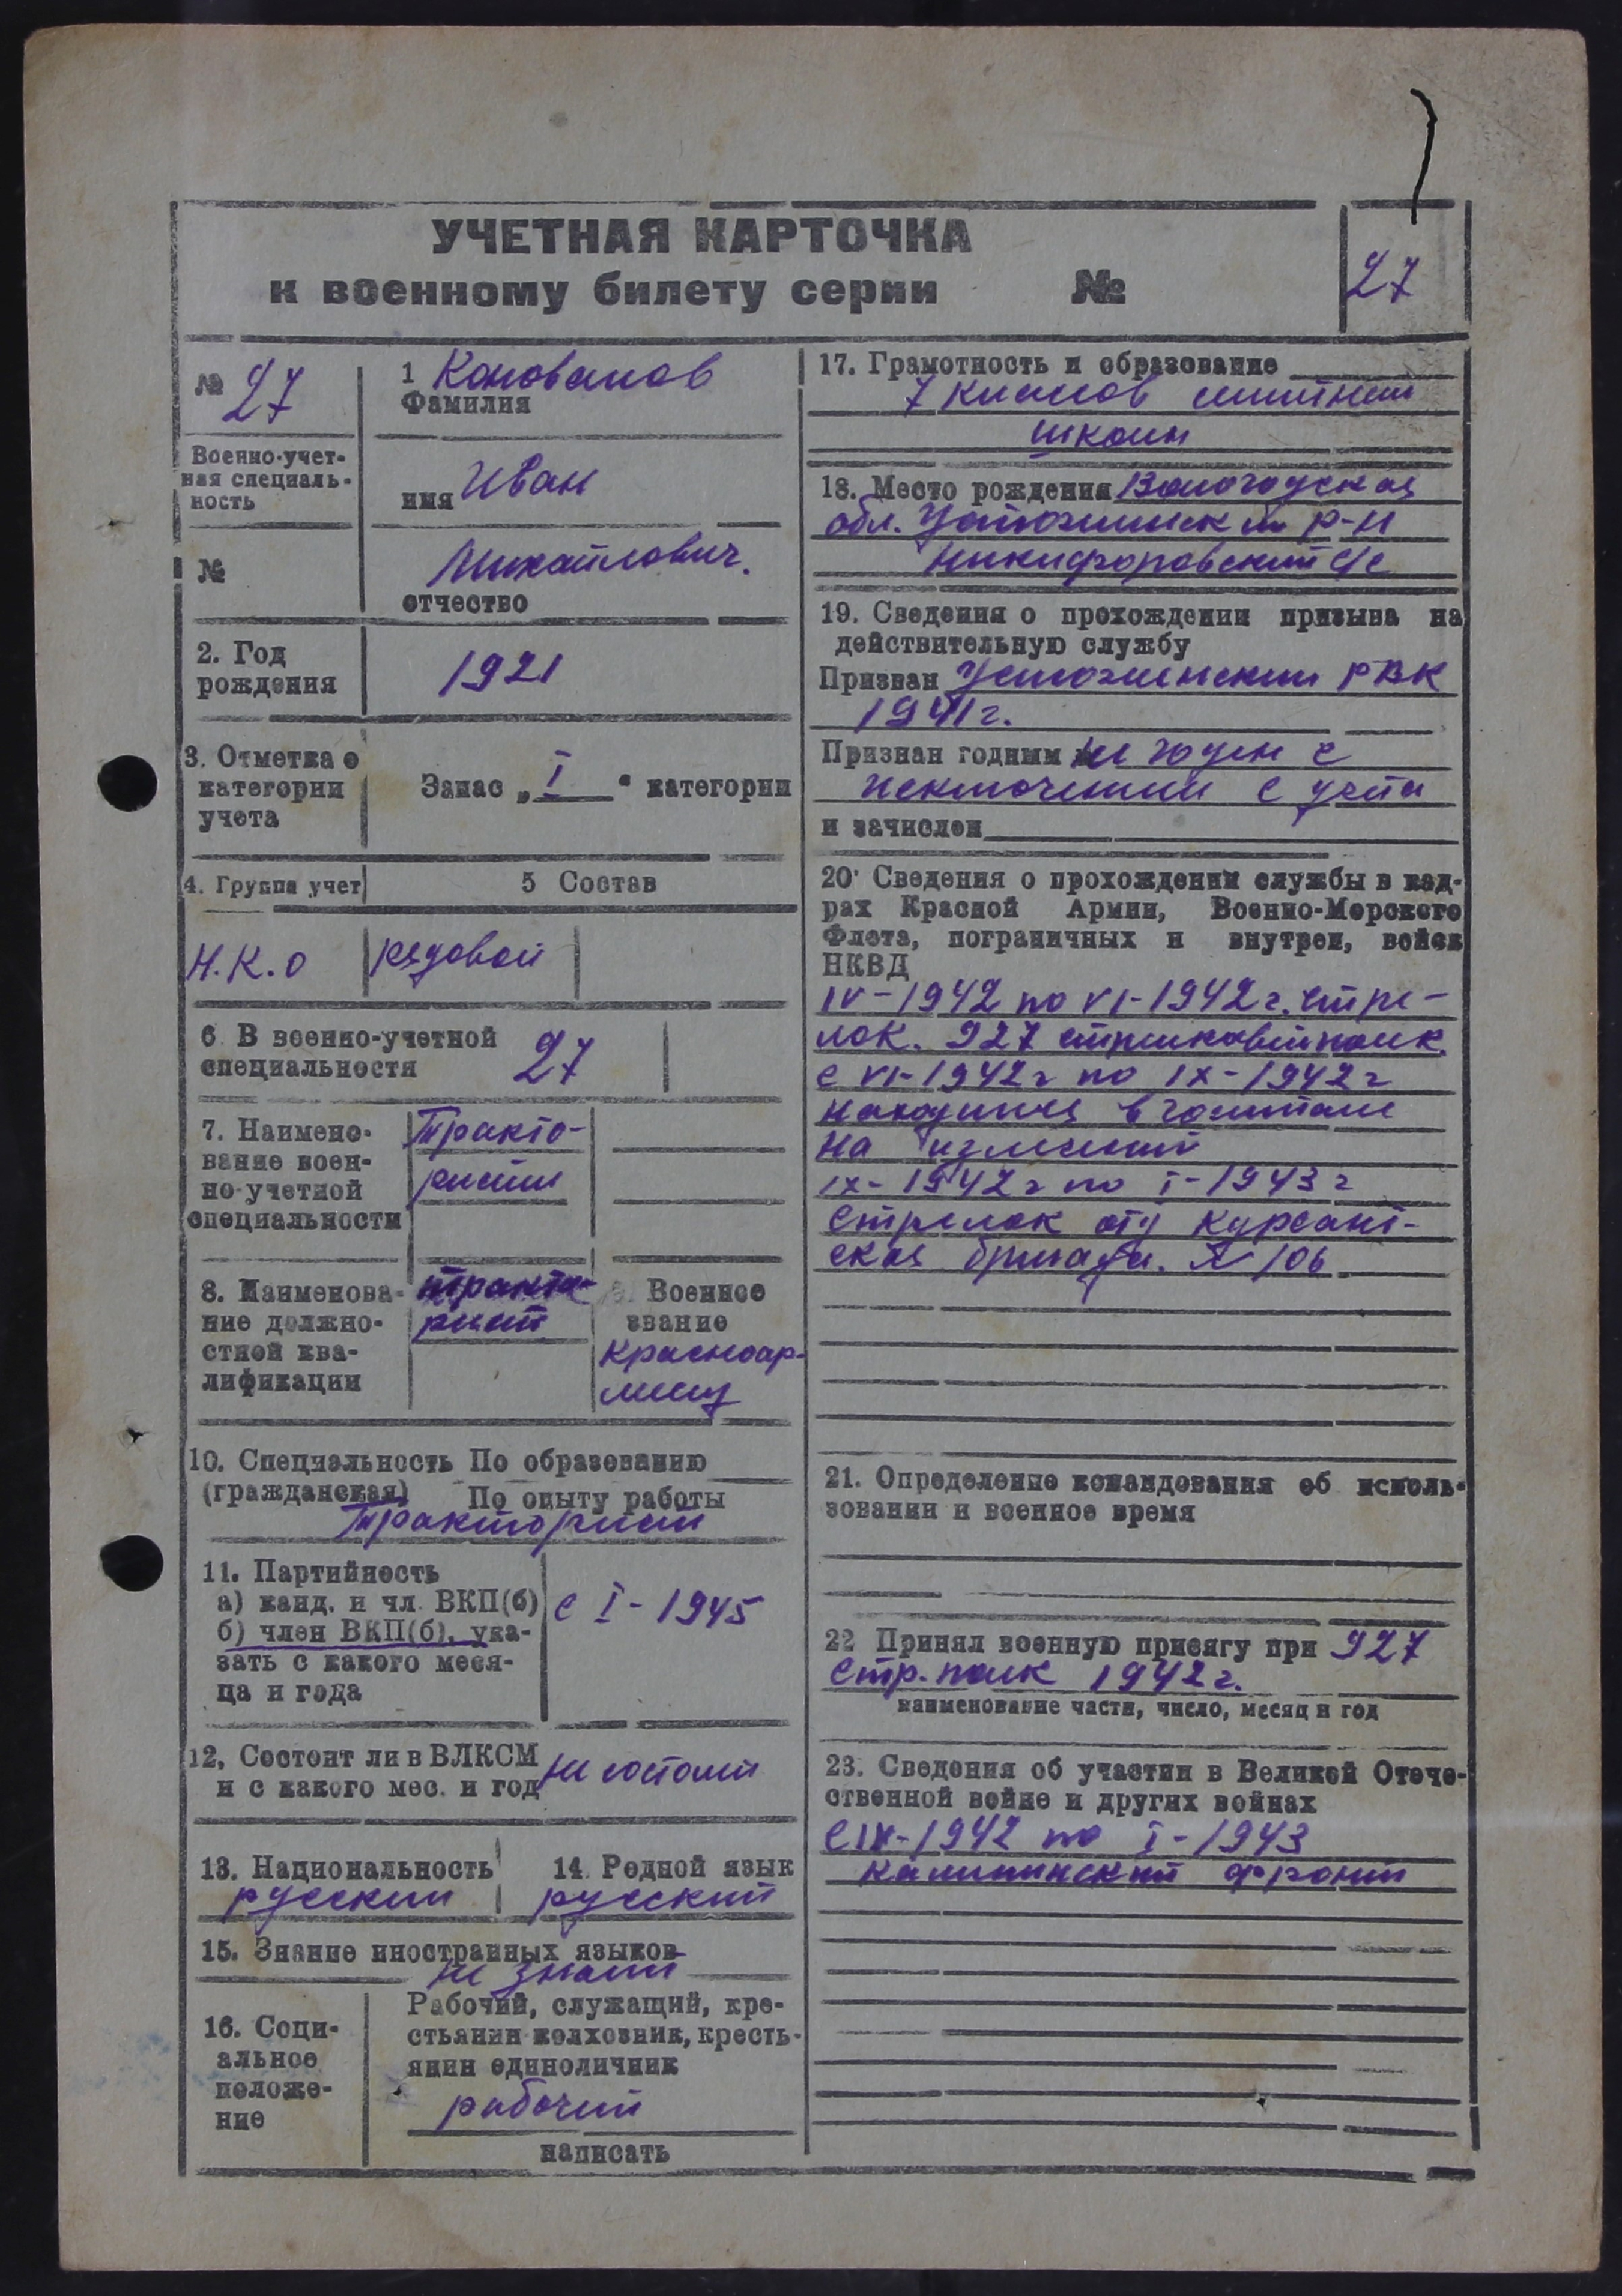 УЧЕТНАЯ КАРТОЧКА
к военному билету серии №
27
№ 27
Военно-учет-
ная специаль-
ность
№
1 Коновалов
Фамилия
имя Иван
Михайлович.
отчество
2. Год
рождения
1921
3. Отметка о
категории
учета
Запас „ I “ категории
4. Группа учет
5 Состав
Н.К.О
рядовой
6 В военно-учетной
специальности
27
7. Наимено-
вание воен-
но-учетной
специальности
Тракто-
ристы
8. Наименова-
ние должно-
стной ква-
лификации
тракто-
рист
Военное
звание
Красноар-
меец
10. Специальность По образованию
(гражданская) По опыту работы
Тракторист
11. Партийность
а) канд. и чл. ВКП(б)
б) член ВКП(б), ука-
зать с какого меся-
ца и года
с I - 1945
12, Состоит ли в ВЛКСМ
и с какого мес. и год
не состоит
13. Национальность
русский
14. Родной язык
русский
15. Знание иностранных языков
не знает
16. Соци-
альное
положе-
ние
Рабочий, служащий, кре-
стьянин колхозник, кресть-
янин единоличник
рабочий
написать
17. Грамотность и образование
7 классов
школы
18. Место рождения Вологодская
обл. Устюженский р-н
Никифоровский с/с
19. Сведения о прохождении призыва на
действительную службу
Призван Устюженским РВК
1941 г.
Признан годным не годен с
исключением с учета
и зачислен
20. Сведения о прохождении службы в кад-
рах Красной Армии, Военно-Морского
Флота, пограничных и внутрен, войск
НКВД
IV-1942 по VI-1942 г. стре-
лок. 927 стрелковый полк.
с VI-1942 г по IX-1942 г
находился в госпитале
на излечении
IX-1942 г по I-1943 г
стрелок отд курсант-
ская бригада. № 106
21. Определение командования об исполь-
зовании и военное время
22 Принял военную присягу при 927
стр. полк 1942 г.
наименование части, число, месяц и год
23. Сведения об участии в Великой Отече-
ственной войне и других войнах
с IX-1942 по I-1943
Калининский фронт